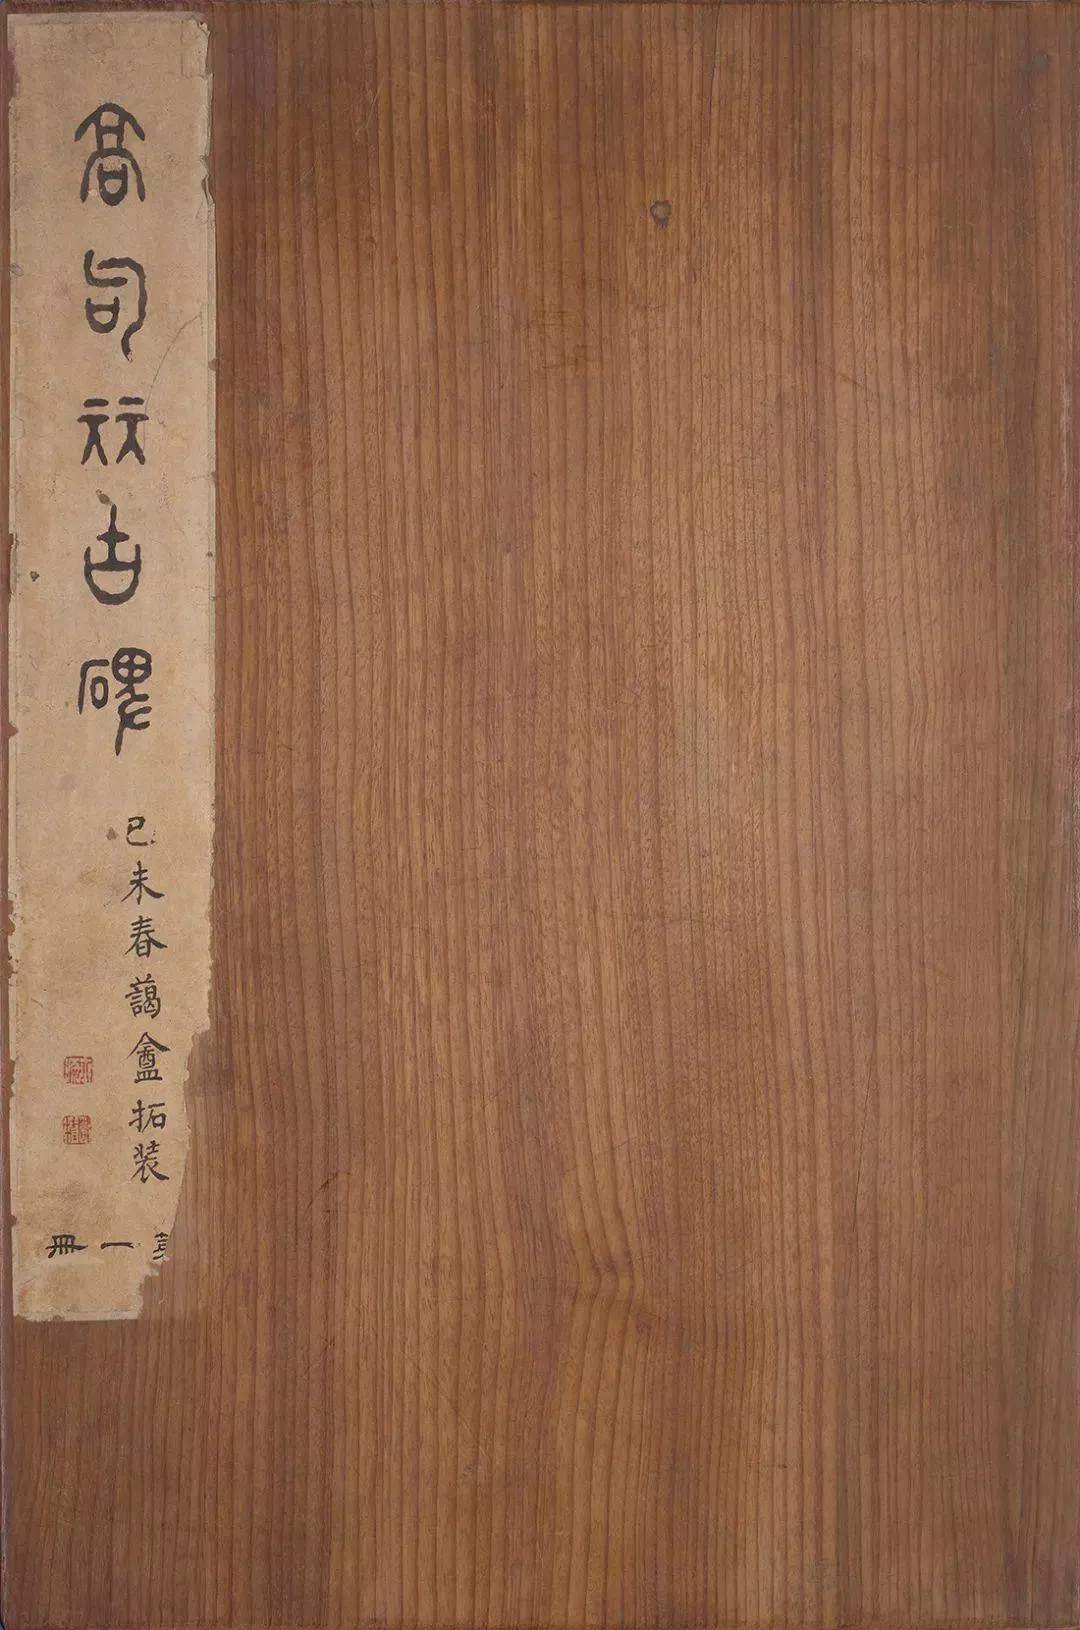 高句丽古碑
己未春藹盦拓装
一冊